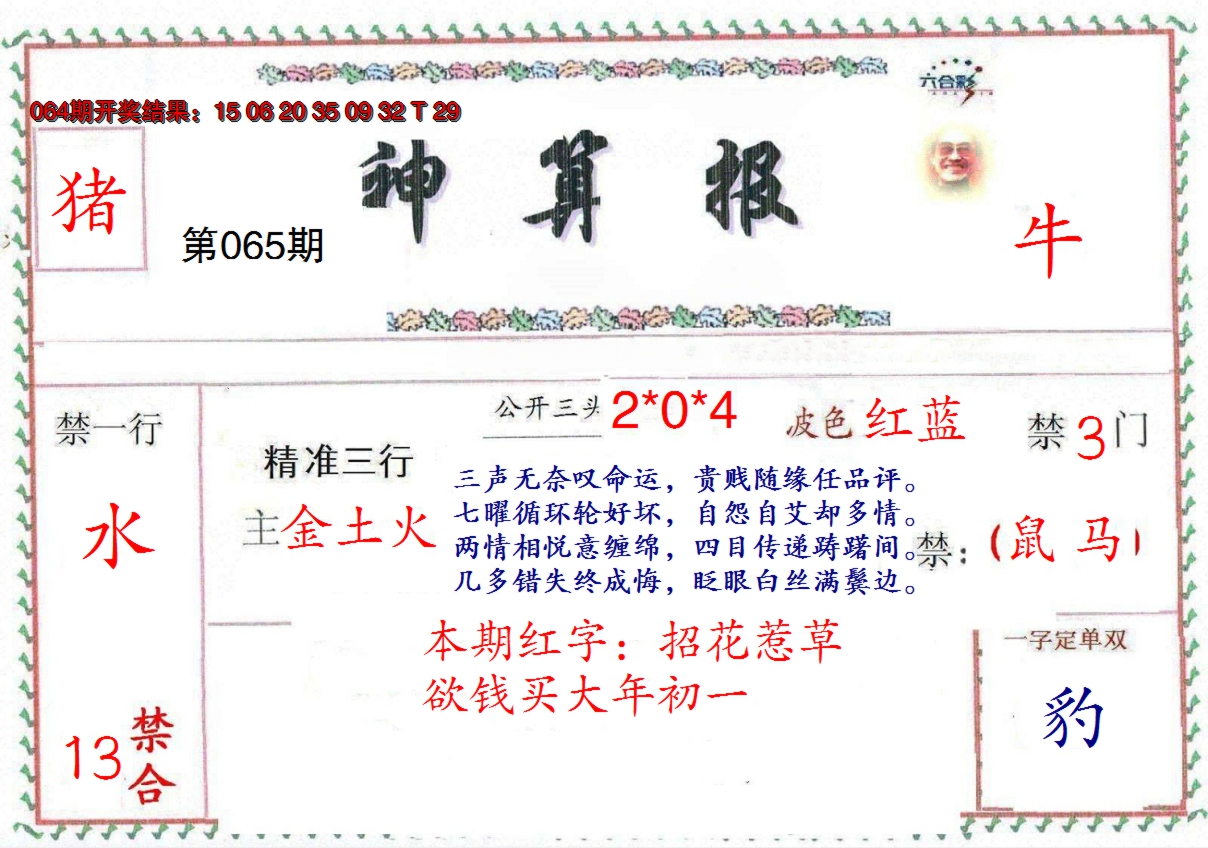 六合彩
064期开奖结果：15 06 20 35 09 32 T 29
神算报
猪
第065期
牛
禁一行
水
13禁合
公开三头 2*0*4
波色 红蓝
禁3门
精准三行
主金土火
三声无奈叹命运，贵贱随缘任品评。
七曜循环轮好坏，自怨自艾却多情。
两情相悦意缠绵，四目传递踌躇间。
几多错失终成悔，眨眼白丝满鬓边。
禁：（鼠 马）
本期红字：招花惹草
欲钱买大年初一
一字定单双
豹